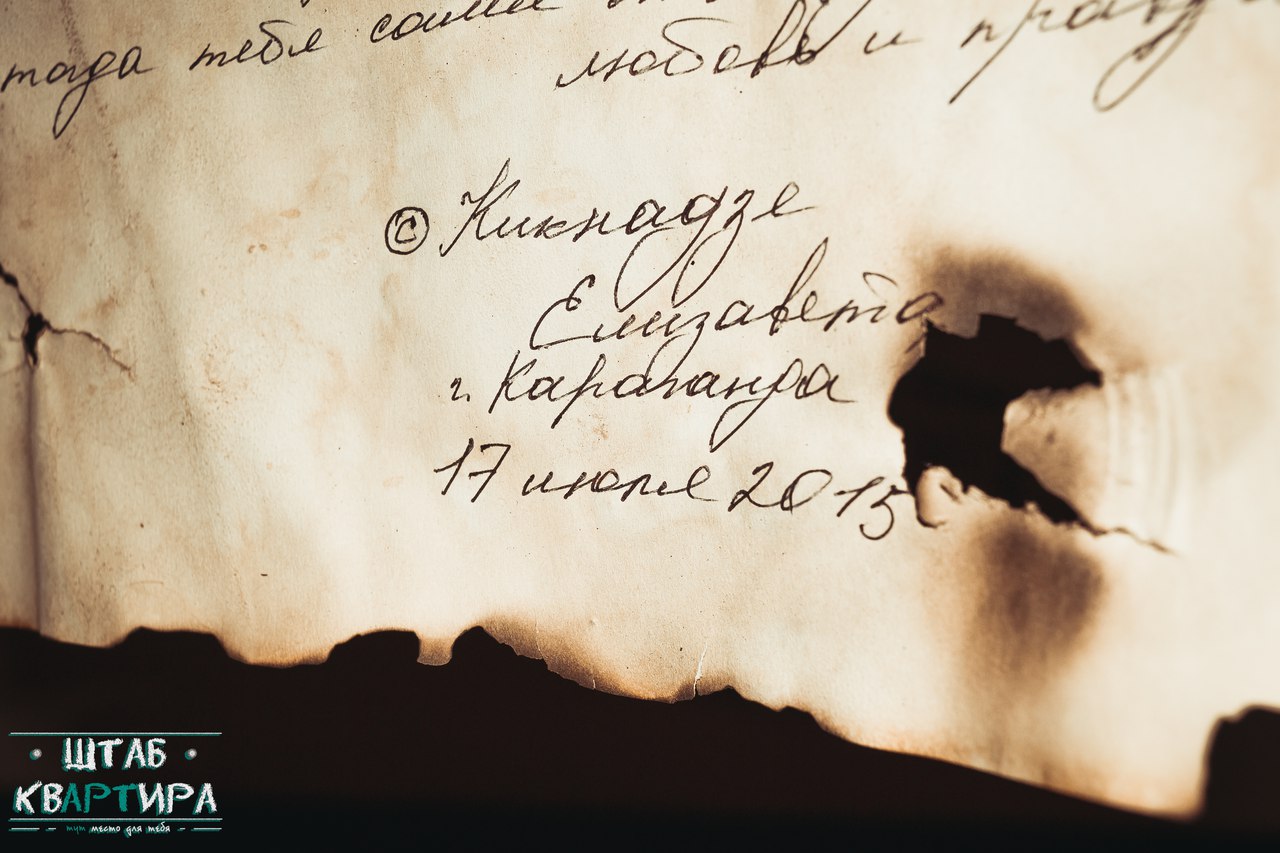 тогда тебя сами
любовь и правд
© Кикнадзе
Елизавета
г. Караганда
17 июля 2015
• ШТАБ •
КВАРТИРА
тут место для тебя